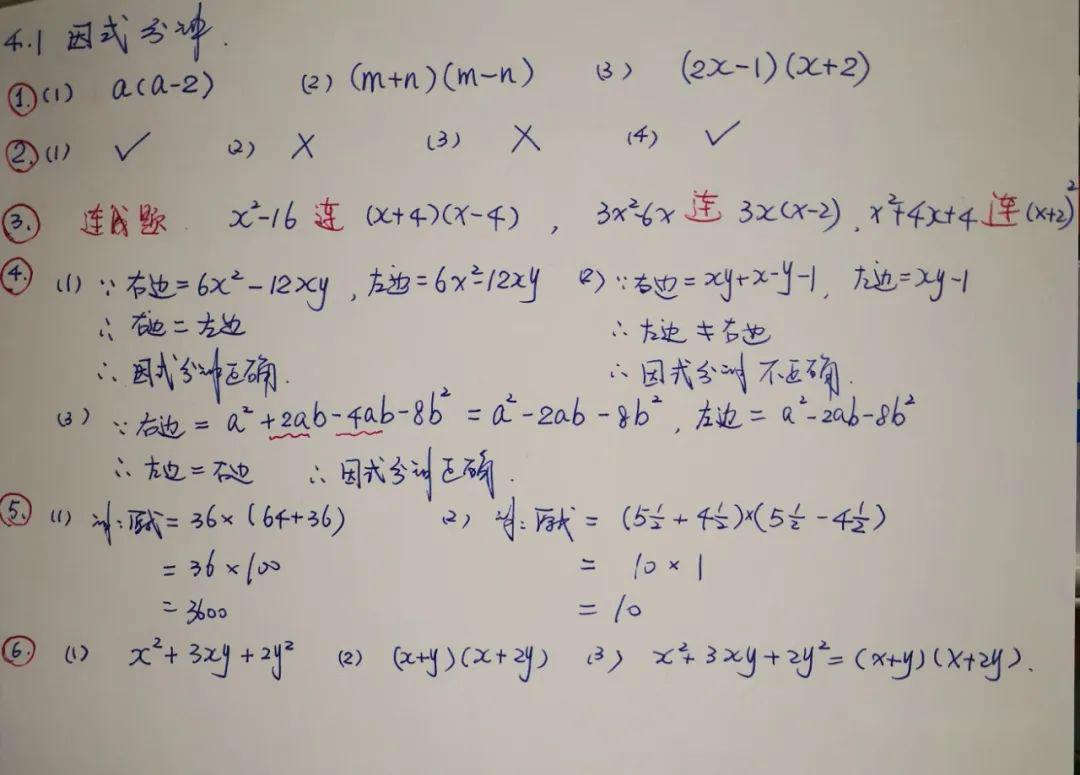 4.1 因式分解.
①.(1) a(a-2) (2) (m+n)(m-n) (3) (2x-1)(x+2)
②.(1) ✓ (2) × (3) × (4) ✓
③. 连线题. x²-16 连 (x+4)(x-4), 3x²-6x 连 3x(x-2), x²+4x+4 连 (x+2)²
④. (1) ∵右边=6x²-12xy, 左边=6x²-12xy (2) ∵右边=xy+x-y-1, 左边=xy-1
∴右边=左边 ∴左边≠右边
∴因式分解正确. ∴因式分解不正确.
(3) ∵右边=a²+2ab-4ab-8b²=a²-2ab-8b², 左边=a²-2ab-8b²
∴左边=右边 ∴因式分解正确.
⑤. (1) 解:原式=36×(64+36) (2) 解:原式=(5½+4½)×(5½-4½)
=36×100 = 10×1
=3600 =10
⑥. (1) x²+3xy+2y² (2) (x+y)(x+2y) (3) x²+3xy+2y²=(x+y)(x+2y).